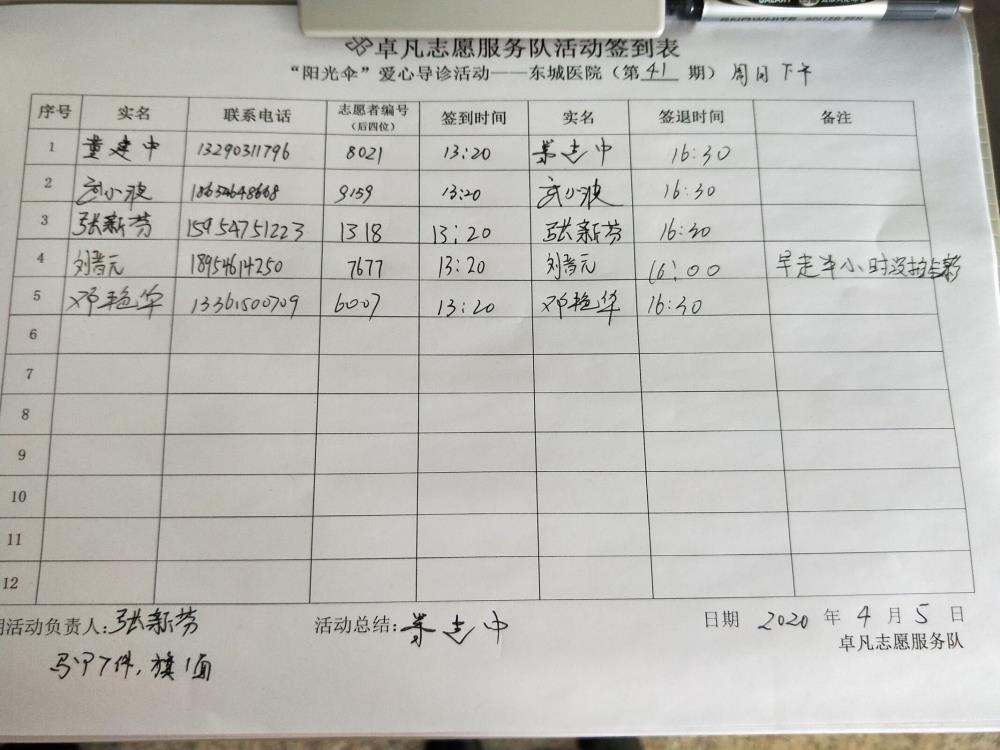 卓凡志愿服务队活动签到表
“阳光伞”爱心导诊活动——东城医院（第 41 期）周日下午
序号 实名 联系电话 志愿者编号（后四位） 签到时间 实名 签退时间 备注
1 董建中 13290311796 8021 13:20 中 16:30
2 武小波 9159 13:20 武小波 16:30
3 张新芬 15954751223 1318 13:20 张新芬 16:30
4 刘晋元 18954614250 7677 13:20 刘晋元 16:00 早走半小时没拍
5 邓艳华 13361500709 6007 13:20 邓艳华 16:30
6
7
8
9
10
11
12
期活动负责人:张新芬 活动总结: 中 日期 2020 年 4 月 5 日
马甲7件，旗1面 卓凡志愿服务队